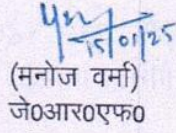 15/01/25
(मनोज वर्मा)
जे0आर0एफ0